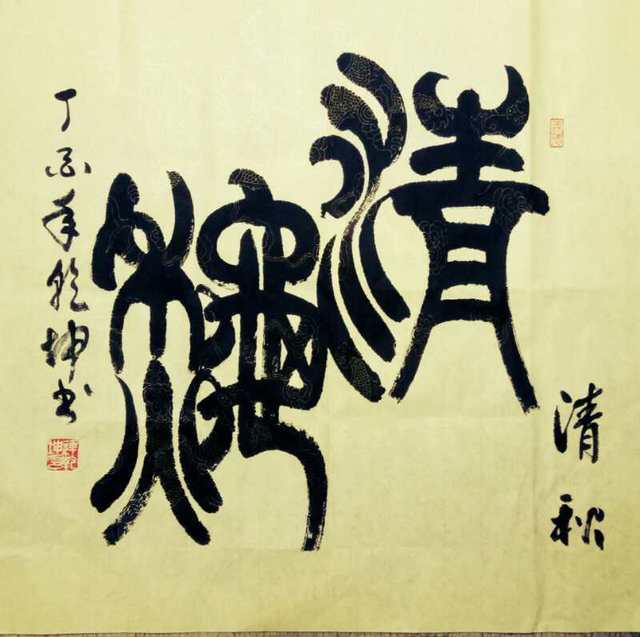 清秋
清秋
丁酉年乾坤书